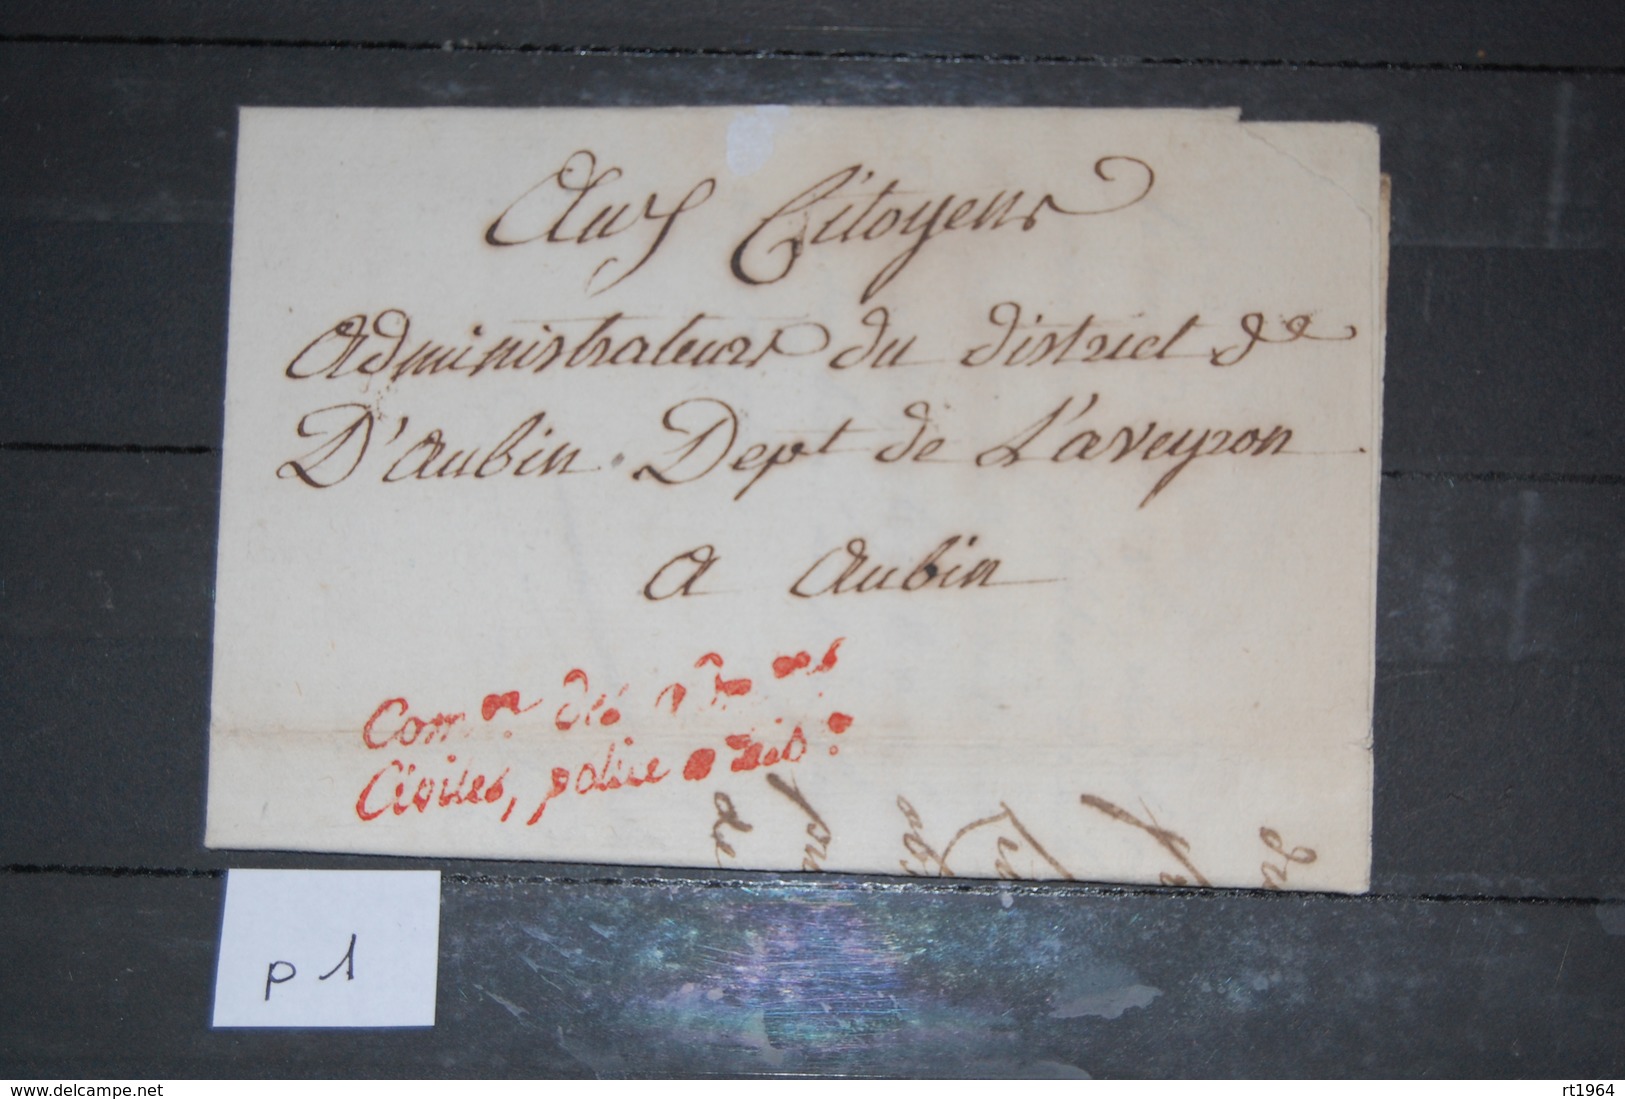 Aux Citoyens
Administrateurs du district de
D'aubin. Dept de L'aveyron
a aubin
Comon. des
Civiles, police
de
du
p 1
www.delcampe.net
rt1964